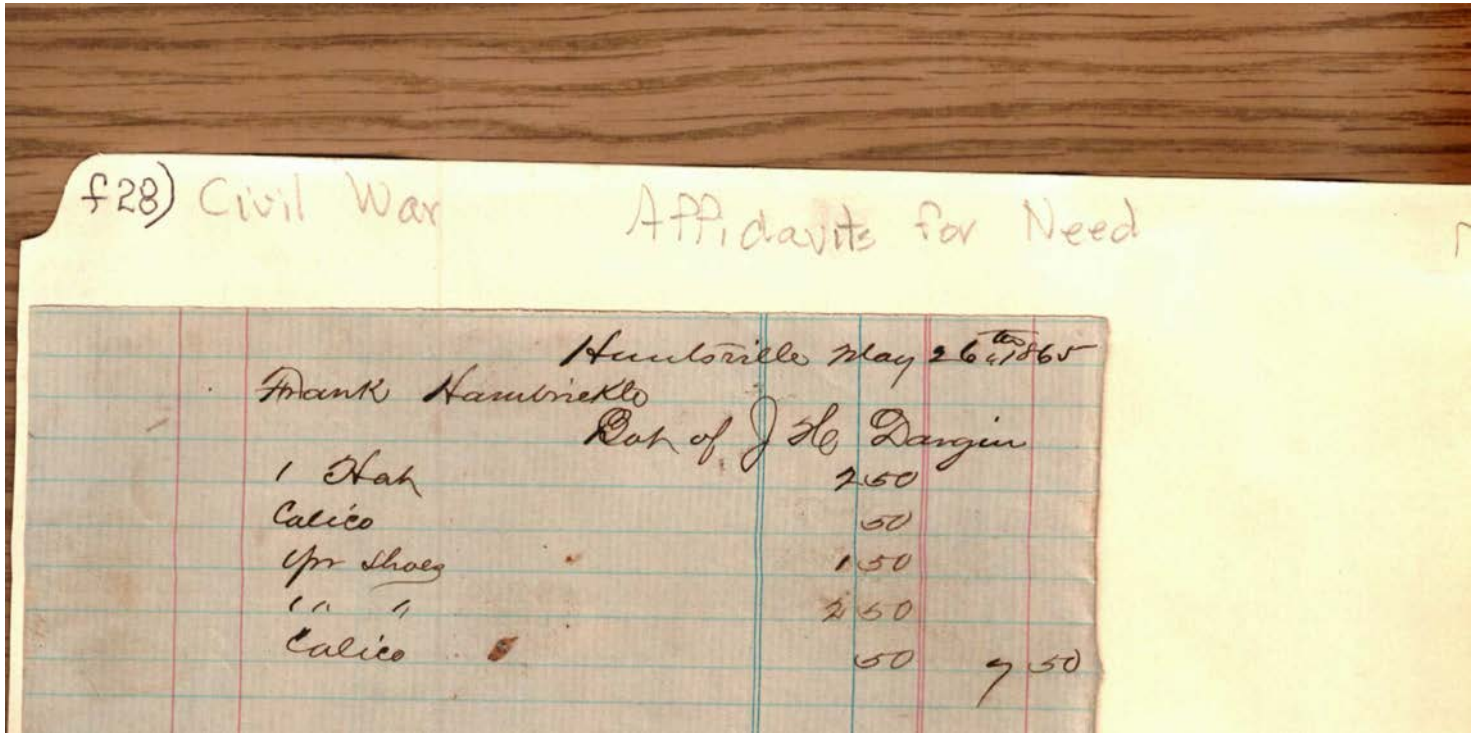 f28) Civil War Affidavits for Need
Huntsville May 26th 1865
Frank Hambrick
Bot of J H Dargin
1 Hat 2 50
Calico 50
1 pr Shoes 1 50
1 " " 2 50
Calico 50 7 50